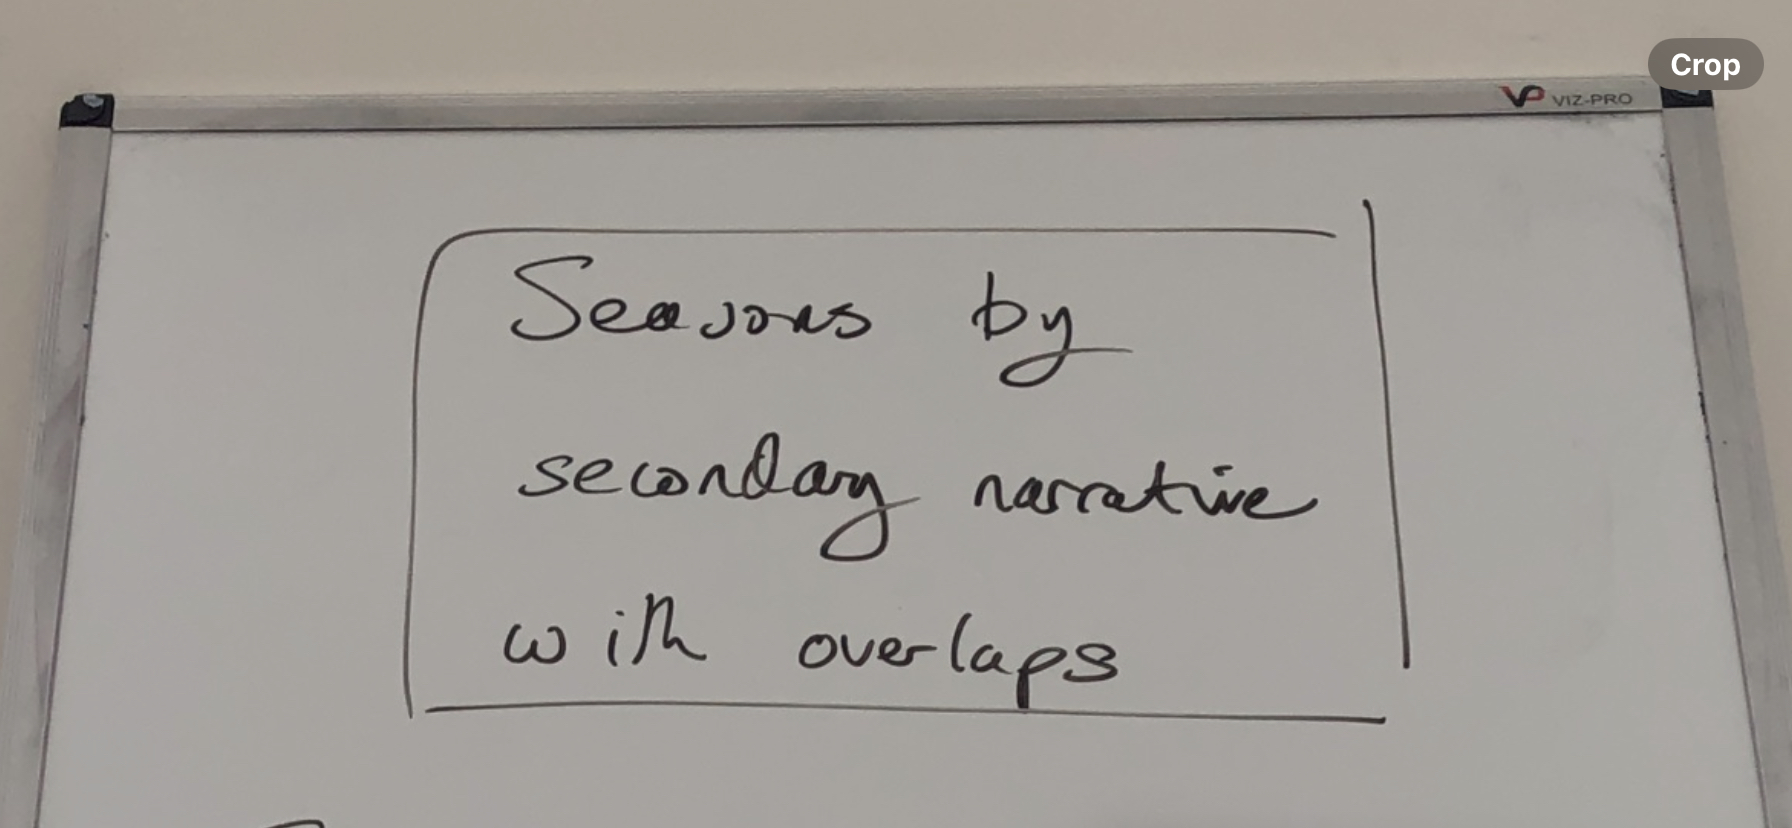 Crop
VP VIZ-PRO
Seasons by
secondary narrative
with overlaps